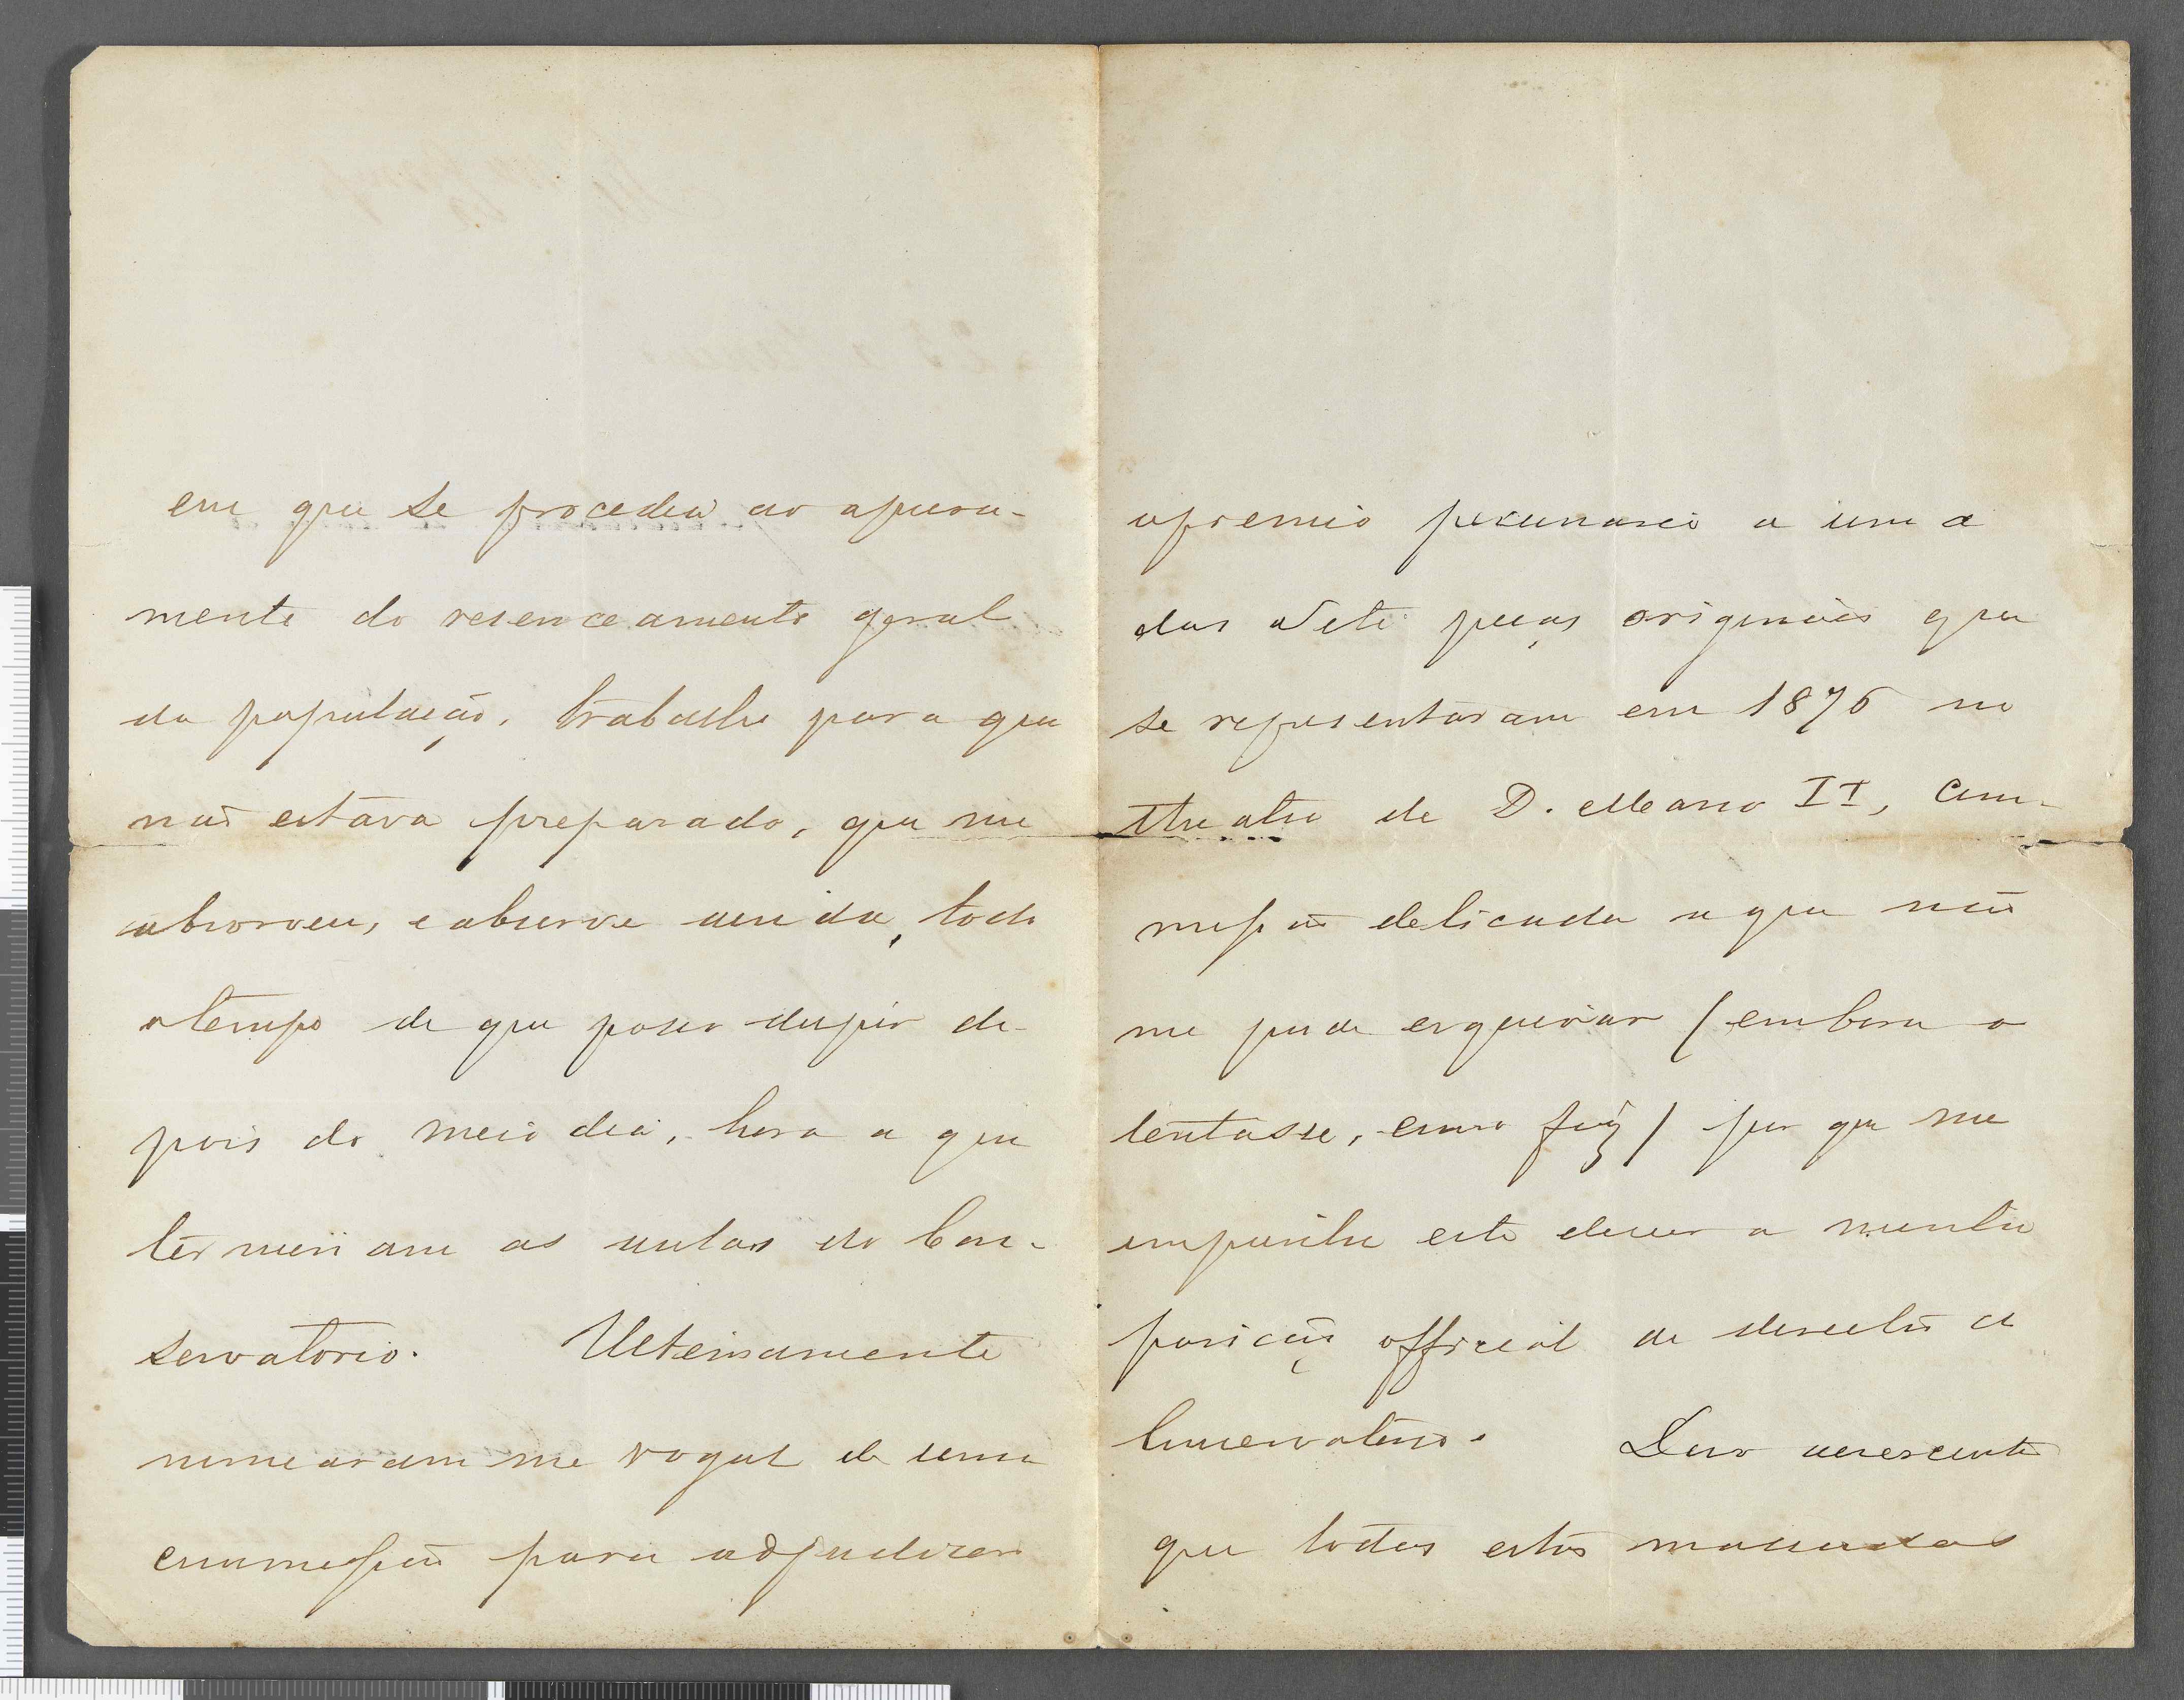 em que se procedeu ao apura-
mento do recenceamento geral
da população, trabalho para que
não estava preparado, que me
absorveu, e absorve ainda, todo
o tempo de que posso dispôr de-
pois do meio dia, hora a que
terminam as aulas do Con-
servatorio. Ultimamente
nomearam me vogal de uma
commissão para adjudicar
o premio pecuniario a uma
das sete peças originaes que
se representaram em 1876 no
theatro de D. Maria II, com-
missão delicada a que não
me pude esquivar (embora o
tentasse, como fiz) por que me
impunha este dever a minha
posição official de director do
Conservatorio. Devo acrescentar
que todas estas massadas